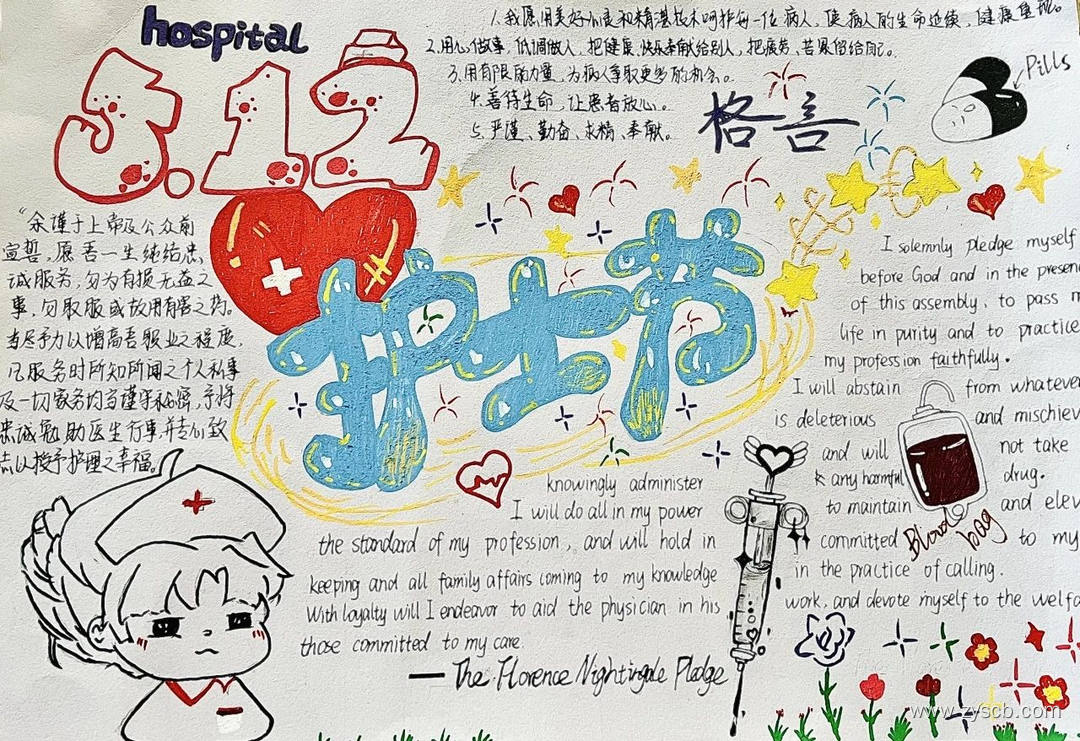 hospital
5.12
1.我愿用美好心灵和精湛技术呵护每一位病人，使病人的生命延续，健康
2.用心做事，低调做人，把健康、快乐奉献给别人，把疲劳、苦累留给自己。
3.用有限的力量，为病人争取更多的机会。
4.善待生命，让患者放心。
5.严谨、勤奋、求精、奉献。
格言
Pills
护士节
"余谨于上帝及公众前
宣誓，愿吾一生纯洁忠
诚服务，勿为有损无益之
事，勿取服或故用有害之药。
当尽予力以增高吾职业之程度，
凡服务时所知所闻之个人私事
及一切家务均当谨守秘密，予将
忠诚勉助医生行事，并专心致
志以授予护理之幸福。
I solemnly pledge myself
before God and in the presen
of this assembly, to pass m
life in purity and to practice
my profession faithfully.
I will abstain from whatever
is deleterious and mischiev
and will not take
or knowingly administer any harmful drug.
I will do all in my power to maintain and elev
the standard of my profession, and will hold in committed to my
keeping and all family affairs coming to my knowledge in the practice of calling.
With loyalty will I endeavor to aid the physician in his work, and devote myself to the welfa
those committed to my care.
— The Florence Nightingale Pledge
Blood
bag
www.zyscb.com